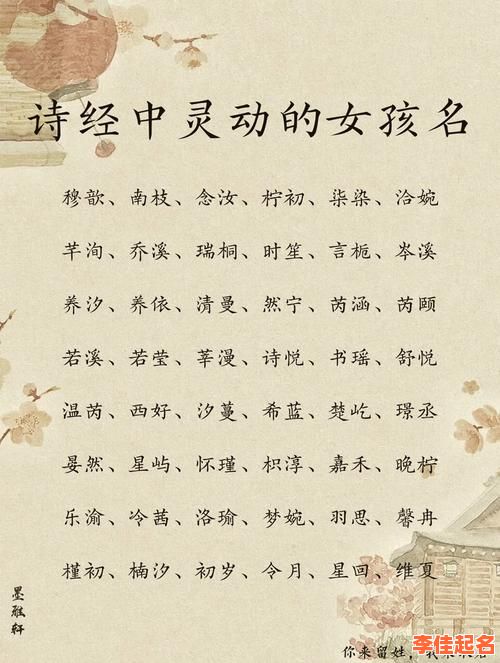 诗经中灵动的女孩名
穆歆、南枝、念汝、柠初、柒染、洽婉
芊洵、乔溪、瑞桐、时笙、言栀、岑溪
养汐、养依、清曼、然宁、芮涵、芮颐
若溪、若莹、莘漫、诗悦、书瑶、舒悦
温芮、西好、汐蔓、希蓝、楚屹、璟丞
晏然、星屿、怀瑾、枳淳、嘉禾、晚柠
乐渝、冷茜、洛瑜、梦婉、羽思、馨冉
槿初、楠汐、初岁、令月、星回、维夏
墨雅轩
你来留姓，
李佳起名